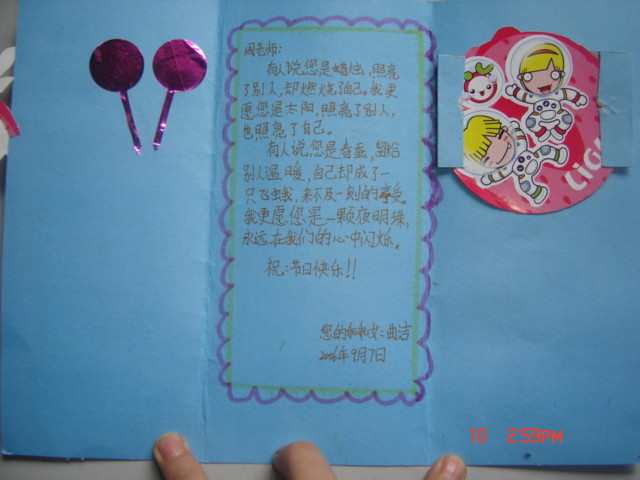 周老师:
有人说您是蜡烛,照亮
了别人,却燃烧自己。我更
愿您是太阳,照亮了别人,
也照亮了自己。
有人说您是春蚕,留给
别人温暖,自己却成了一
只飞蛾,来不及一刻的享受。
我更愿您是一颗夜明珠,
永远在我们的心中闪烁。
祝:节日快乐!!
您的:曲洁
年9月7日
LIGH
10 2:53PM